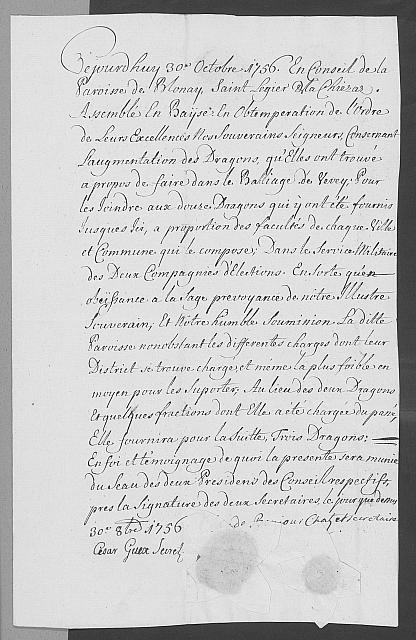 Cejourdhuy 30.e Octobre 1756. En Conseil de la
Paroisse de Blonay, Saint Legier & La Chiezaz.
Assemblé En Bayse En Obtemperation de l'Ordre
de Leurs Excellences Nos Souverains Seigneurs, Concernant
L'augmentation des Dragons, qu'Elles ont trouvé
a propos de faire dans le Balliage de Vevey, Pour
les Joindre aux douze Dragons qui y ont été fournis
Jusques Ici, a proportion des facultés de chaque Ville
et Commune qui le compose; Dans le Service Militaire
des Deux Compagnies d'Elections. En sorte qu'en
obeissance a la Sage prevoyance de notre Illustre
Souverain, Et Notre humble Soumission La ditte
Paroisse nonobstant les differentes charges dont leur
District se trouve chargé, et même la plus foible en
moyen pour les Suporter, Au lieu des deux Dragons
Et quelques fractions dont Elle a été chargée du passé,
Elle fournira pour la Suitte, Trois Dragons:
En foi et témoignage de quoi la presente sera munie
du Seau des deux Presidens des Conseils respectifs,
pres la Signature des deux Secretaires, le jour que dessus
30.e 8bre 1756
Chazet secretaire
César Guex Secret.